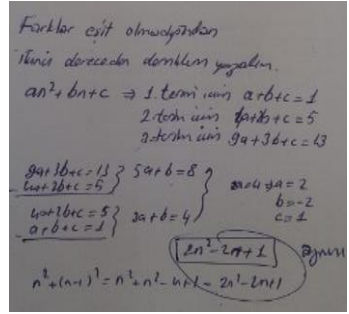 Farklar eşit olmadığından
ikinci dereceden denklem yazalım.
an²+bn+c ⇒ 1. terim için a+b+c=1
2. terim için 4a+2b+c=5
3. terim için 9a+3b+c=13
9a+3b+c=13 } 5a+b=8
4a+2b+c=5
2a=4 → a=2
b=-2
c=1
4a+2b+c=5 } 3a+b=4
a+b+c=1
2n²-2n+1
n²+(n-1)²=n²+n²-2n+1=2n²-2n+1